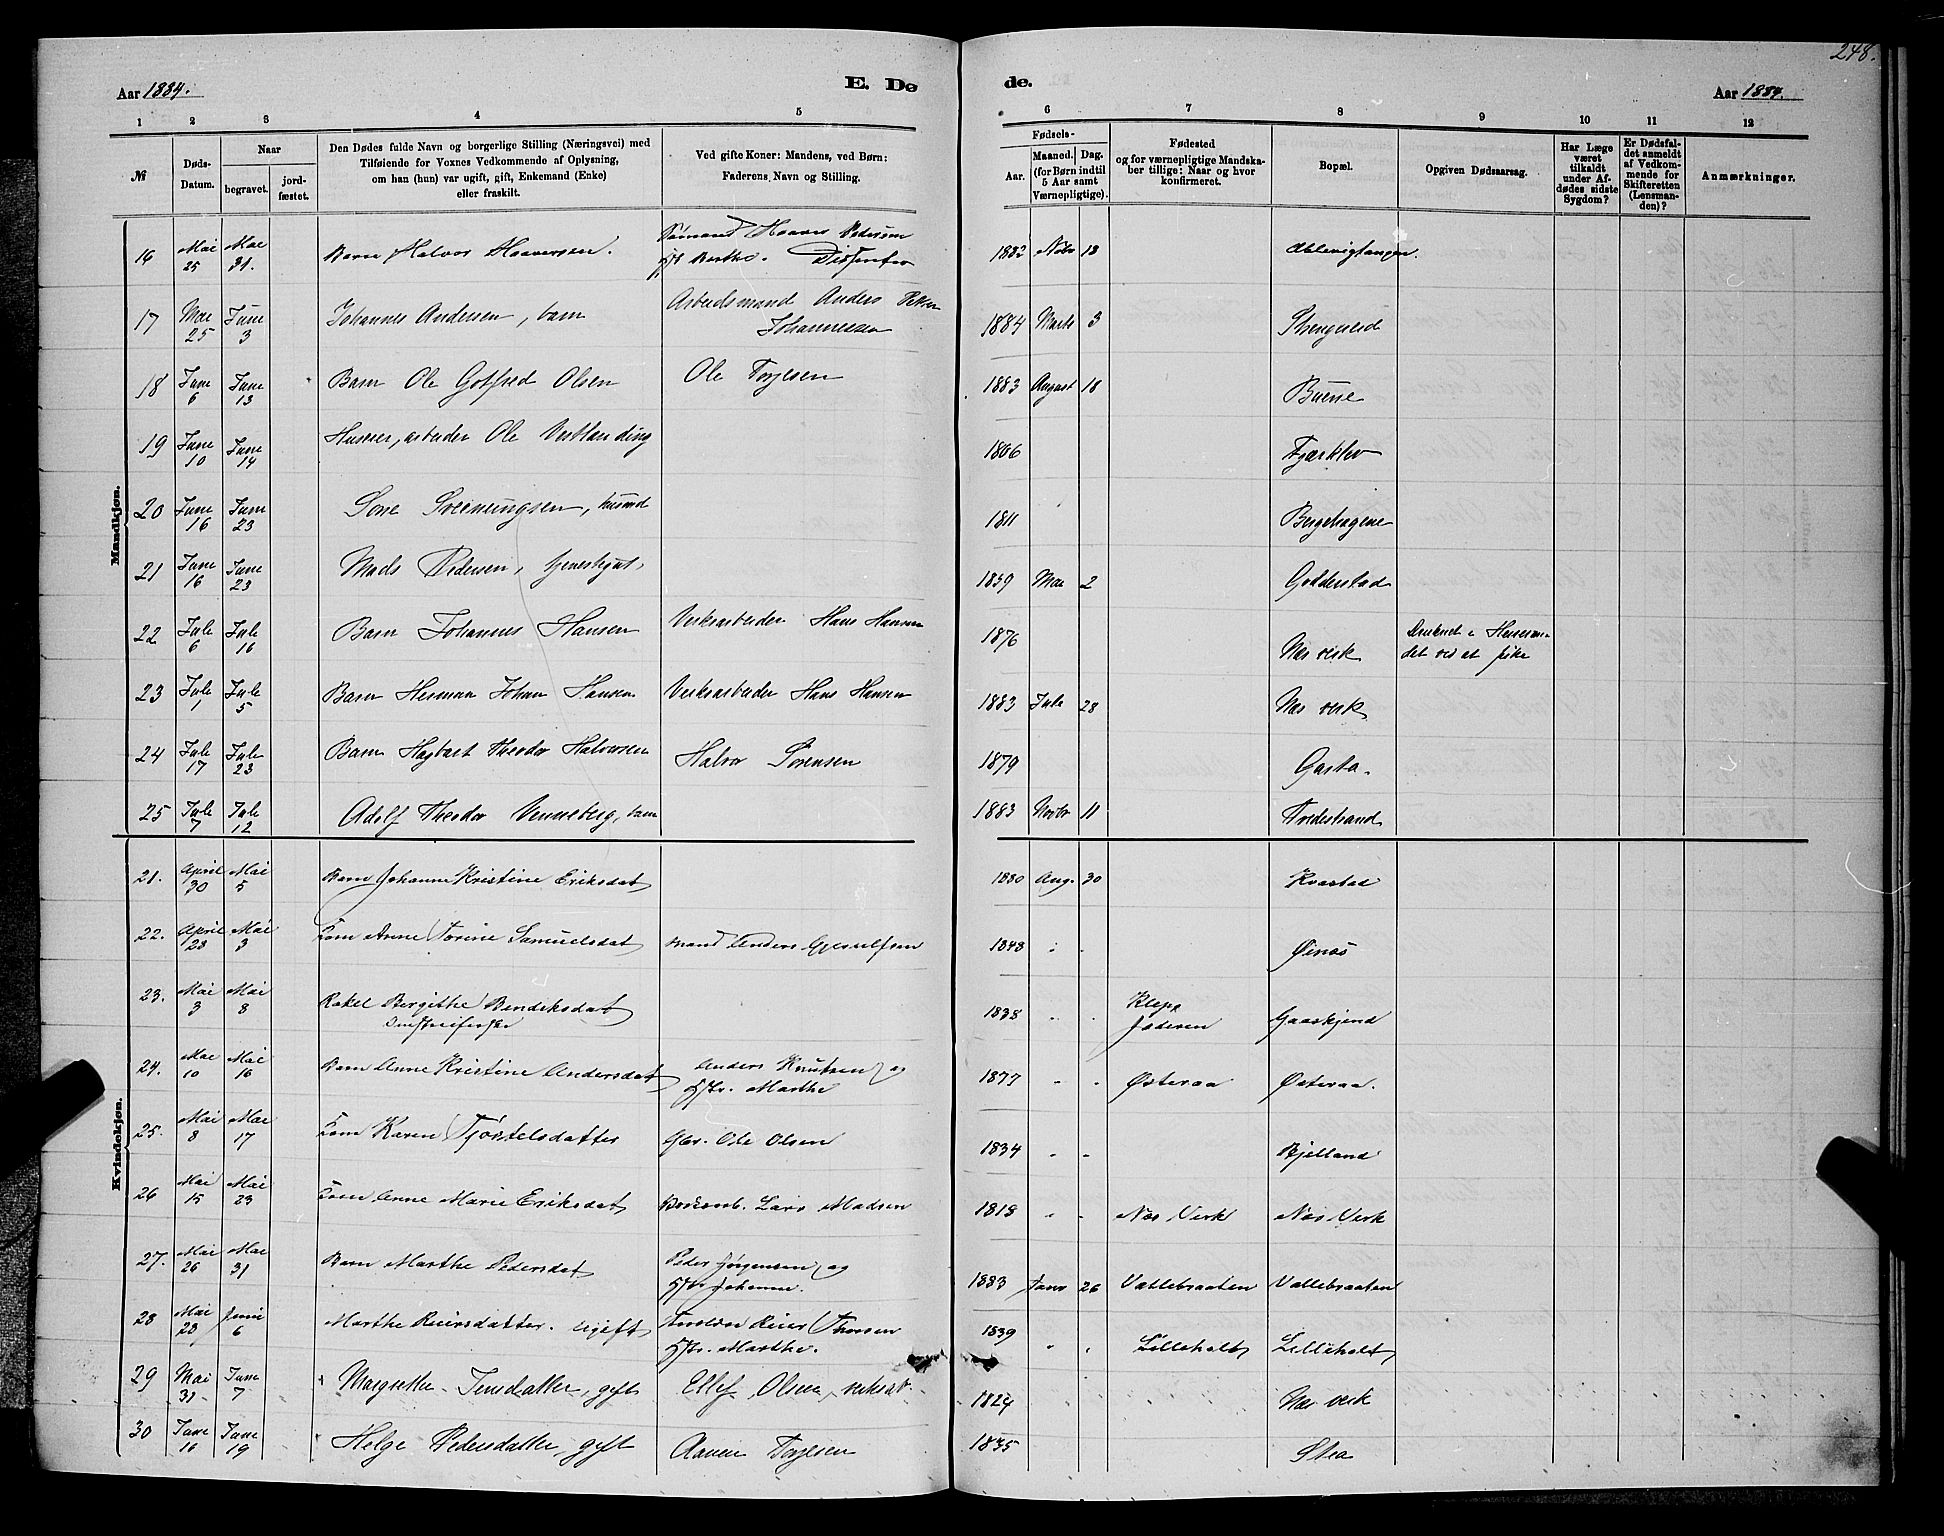 248.
Aar 1884.
E. Dø
de.
Aar 1884.
1 2 3 4 5 6 7 8 9 10 11 12
№
Døds-Datum.
Naar
begravet.
jord-fæstet.
Den Dødes fulde Navn og borgerlige Stilling (Næringsvei) med
Tilføiende for Voxnes Vedkommende af Oplysning,
om han (hun) var ugift, gift, Enkemand (Enke)
eller fraskilt.
Ved gifte Koner: Mandens, ved Børn:
Faderens Navn og Stilling.
Fødsels-
Aar. Maaned. Dag.
(for Børn indtil
5 Aar samt
Værnepligtige).
Fødested
og for værnepligtige Mandska-
ber tillige: Naar og hvor
konfirmeret.
Bopæl.
Opgiven Dødsaarsag.
Har Læge
været
tilkaldt
under Af-
dødes sidste
Sygdom?
Er Dødsfal-
det anmeldt
af Vedkom-
mende for
Skifteretten
(Lensman-
den)?
Anmærkninger.
Mandkjøn.
16 Mai 25 Mai 31. Barn Halvor Haaversen. Sømand Haaver Pedersen 1882 Novbr 13
Berthe. Dissenter
17 Mai 25 Juni 3 Johannes Andersen, barn Arbeidsmand Anders 1884 Marts 3
Johannessen
18 Juni 6 Juni 13 Barn Ole Gotfred Olsen Ole Torjesen 1883 August 18 Buene
19 Juni 10 Juni 14 arbeider Ole Vestlanding 1806
20 Juni 16 Juni 23 Sveinungsen, husmd 1811 Bergehagene
21 Juni 16 Juni 23 Mads Pedersen, tjenestegut, 1859 Mai 2 Godderstad
22 Juli 6 Juli 16 Barn Johannes Hansen Verksarbeider Hans Hansen 1876 Næs verk Druknet i
det ved at fiske
23 Juli 1 Juli 5 Barn Herman Johan Hansen Verksarbeider Hans Hansen 1883 Juli 28 Næs verk
24 Juli 17 Juli 23 Barn Hagbart Theodor Halvorsen Halvor Sørensen 1879 Gasta.
25 Juli 7 Juli 12 Adolf Theodor Venneberg, barn 1883 Novbr 11 Tvedestrand
Kvindekjøn.
21. April 30 Mai 5 Barn Johanne Kristine Eriksdat 1880 Aug. 30 Kvastad
22. April 28 Mai 3 Kone Anne Torine Samuelsdat mand Anders Gjerulfsen 1848 " - Øinæs
23. Mai 3 Mai 8 Rakel Bergithe Bendiksdat 1838 " . Klep Jæderen Gaaskjend
24. Mai 10 Mai 16 Barn Anne Kristine Andersdat Anders Knutsen og 1877 " " Østeraa Østeraa.
Hstr. Marthe
25. Mai 8 Mai 17 Kone Karen Tjøstelsdatter Gbr. Ole Olsen 1834 " - Bjelland
26 Mai 15 Mai 23 Kone Anne Marie Eriksdat Lars Madsen 1818 " - Næs Verk Næs Verk
27. Mai 26 Mai 31 Barn Marthe Pedersdat Peder Jørgensen og 1883 Janr 26 Vattebraaten Vattebraaten
Hstr Johanne.
28 Mai 28 Juni 6 Marthe Reiersdatter. ugift Reier Thorsen 1839 " . Lilleholt Lilleholt
Hstr. Marthe.
29 Mai 31 Juni 7 Margrethe Jensdatter, gift Ellef Olsen, verksarb. 1824 Næs verk
30 Juni 16 Juni 19 Helge Pedersdatter, gift Aanen Torjesen 1835 Stea